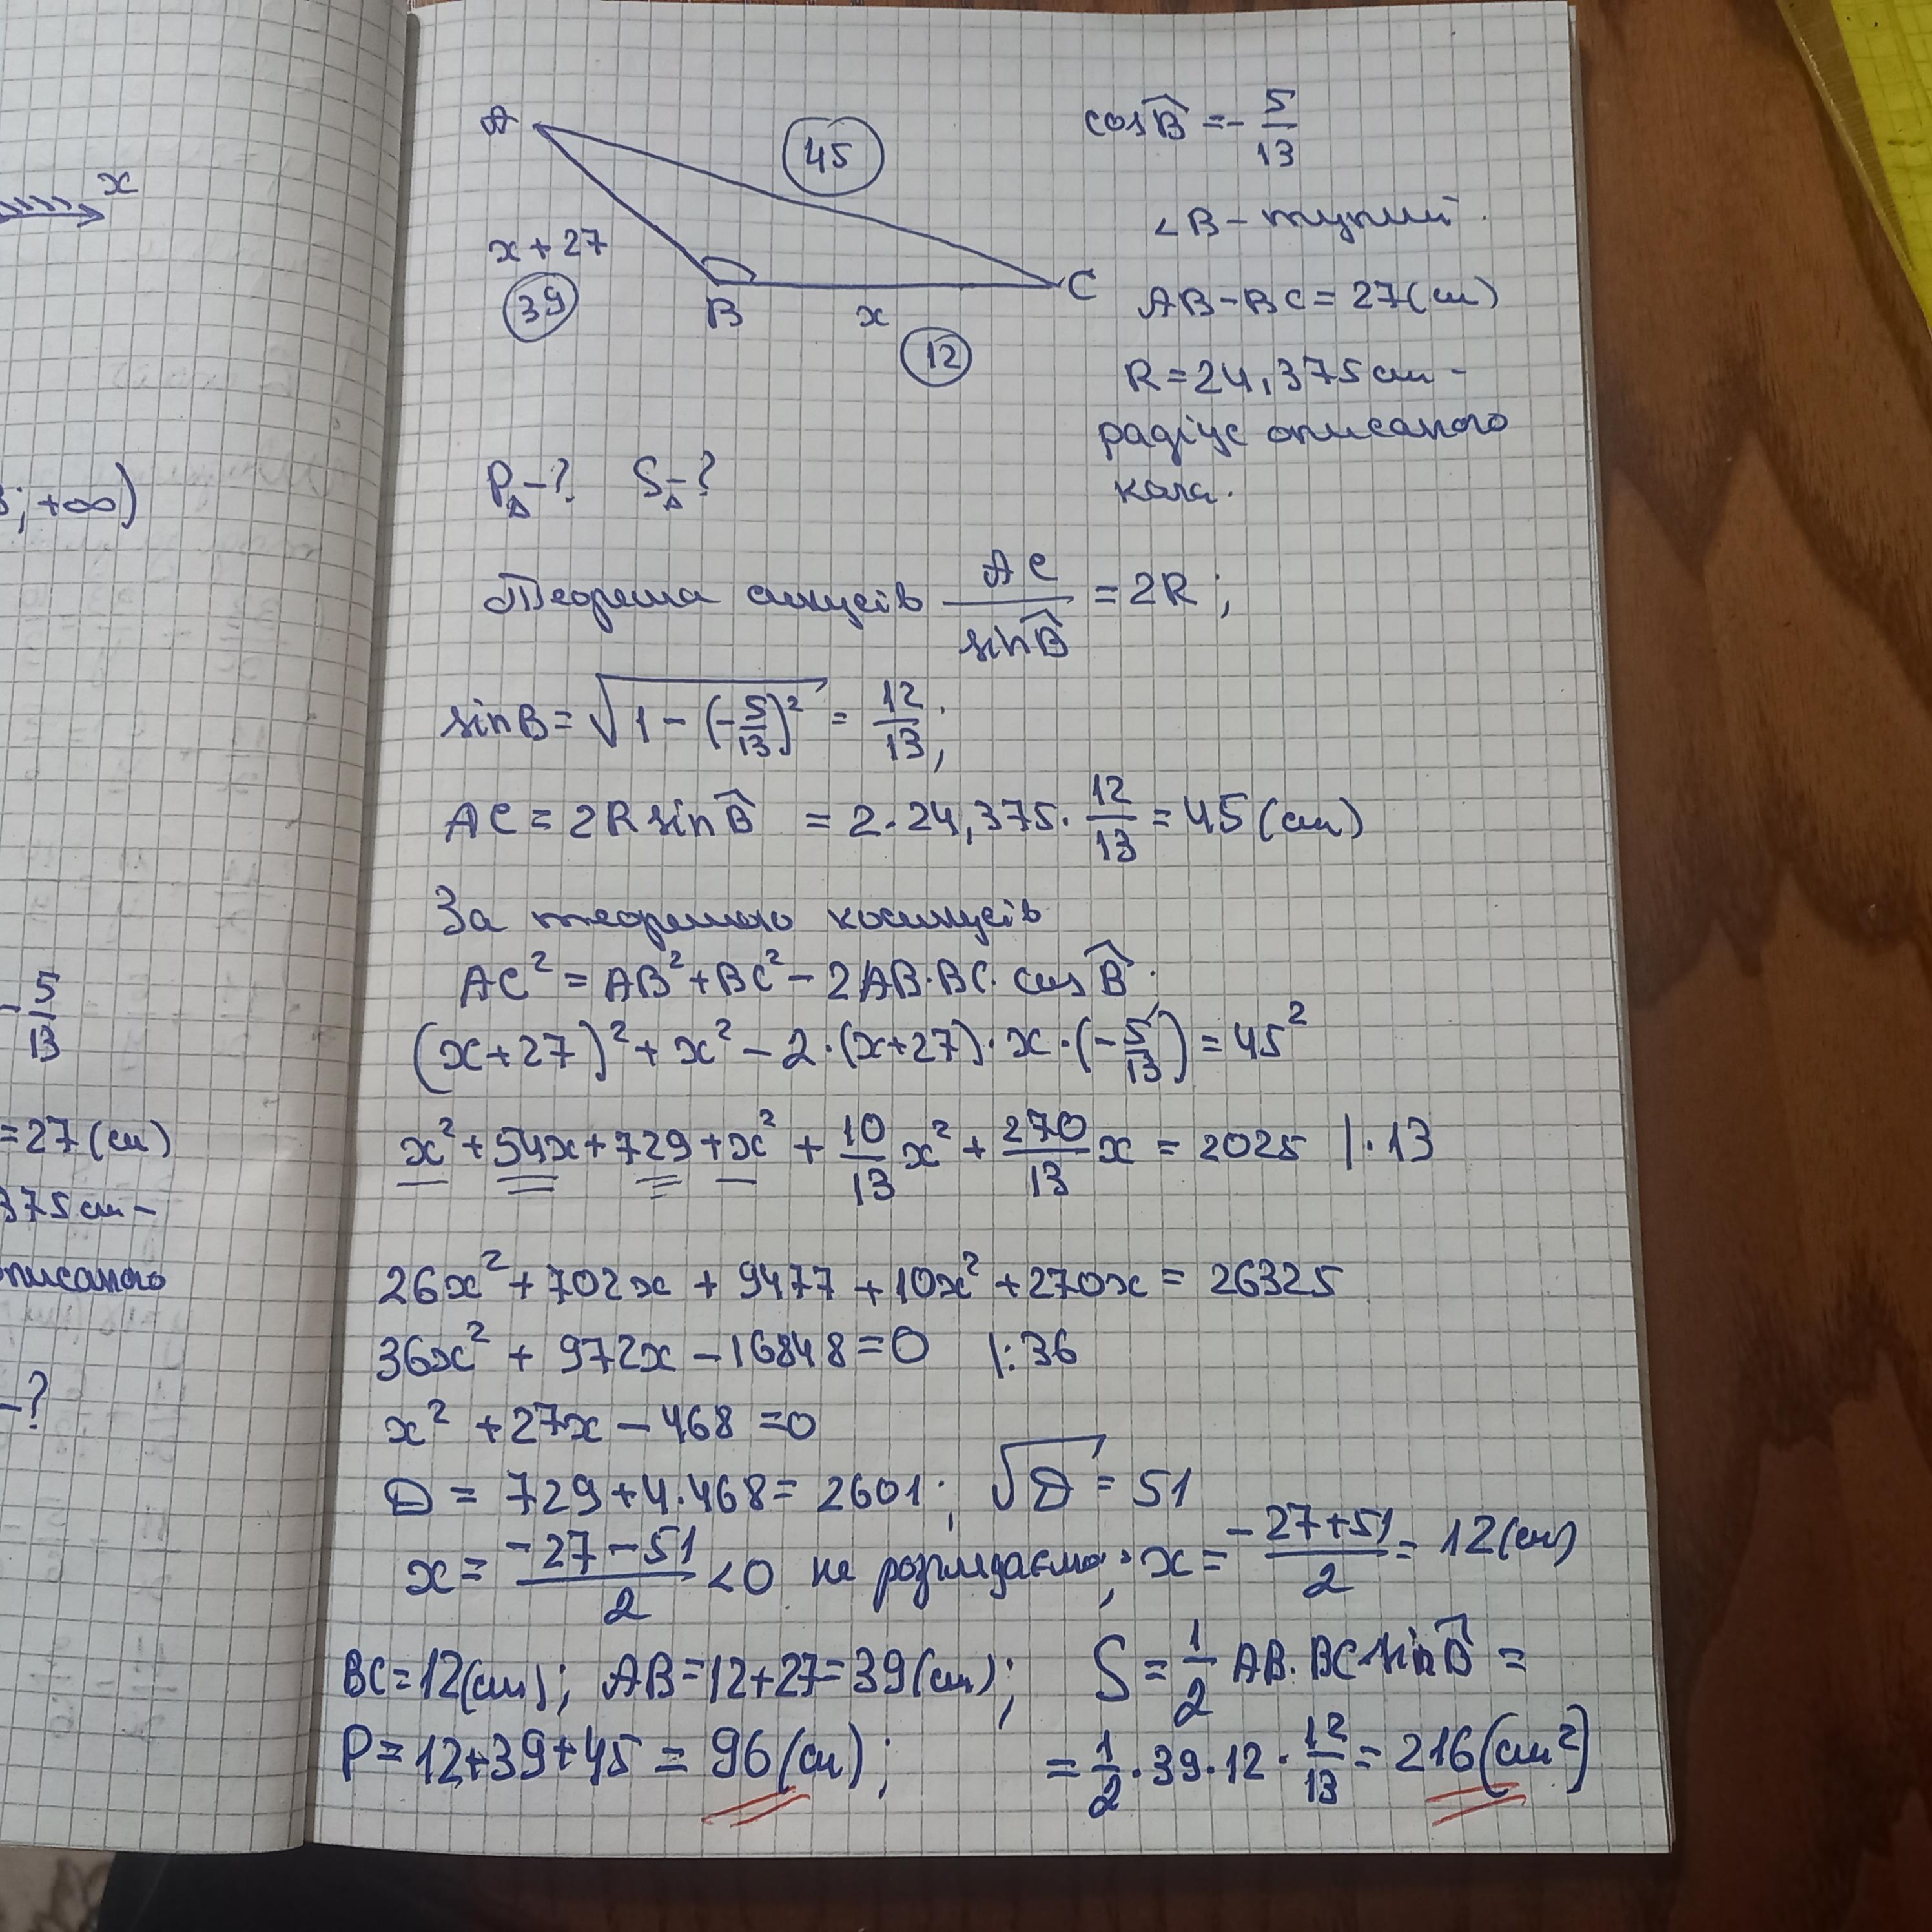 x
; +∞)
- 5/13
=27(см)
375 см -
описаного
-?
A
45
cos B̂ = - 5/13
∠B - тупий.
x + 27
39
B
x
C
12
AB - BC = 27(см)
R = 24,375 см -
радіус описаного
кола.
P△ - ? S△ - ?
Теорема синусів AC/sin B̂ = 2R ;
sin B = √(1 - (-5/13)²) = 12/13 ;
AC = 2R sin B̂ = 2·24,375 · 12/13 = 45 (см)
За теоремою косинусів
AC² = AB² + BC² - 2AB·BC· cos B̂ ;
(x+27)² + x² - 2·(x+27)·x·(-5/13) = 45²
x² + 54x + 729 + x² + 10/13 x² + 270/13 x = 2025 |·13
26x² + 702x + 9477 + 10x² + 270x = 26325
36x² + 972x - 16848 = 0 |:36
x² + 27x - 468 = 0
D = 729 + 4·468 = 2601 ; √D = 51
x = (-27-51)/2 < 0 не розглядаємо ; x = (-27+51)/2 = 12(см)
BC = 12(см); AB = 12+27 = 39(см); S = 1/2 AB·BC sin B̂ =
P = 12+39+45 = 96(см); = 1/2 · 39·12 · 12/13 = 216(см²)